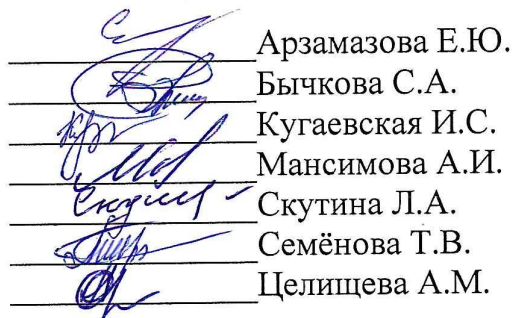 Арзамазова Е.Ю.
Бычкова С.А.
Кугаевская И.С.
Мансимова А.И.
Скутина Л.А.
Семёнова Т.В.
Целищева А.М.